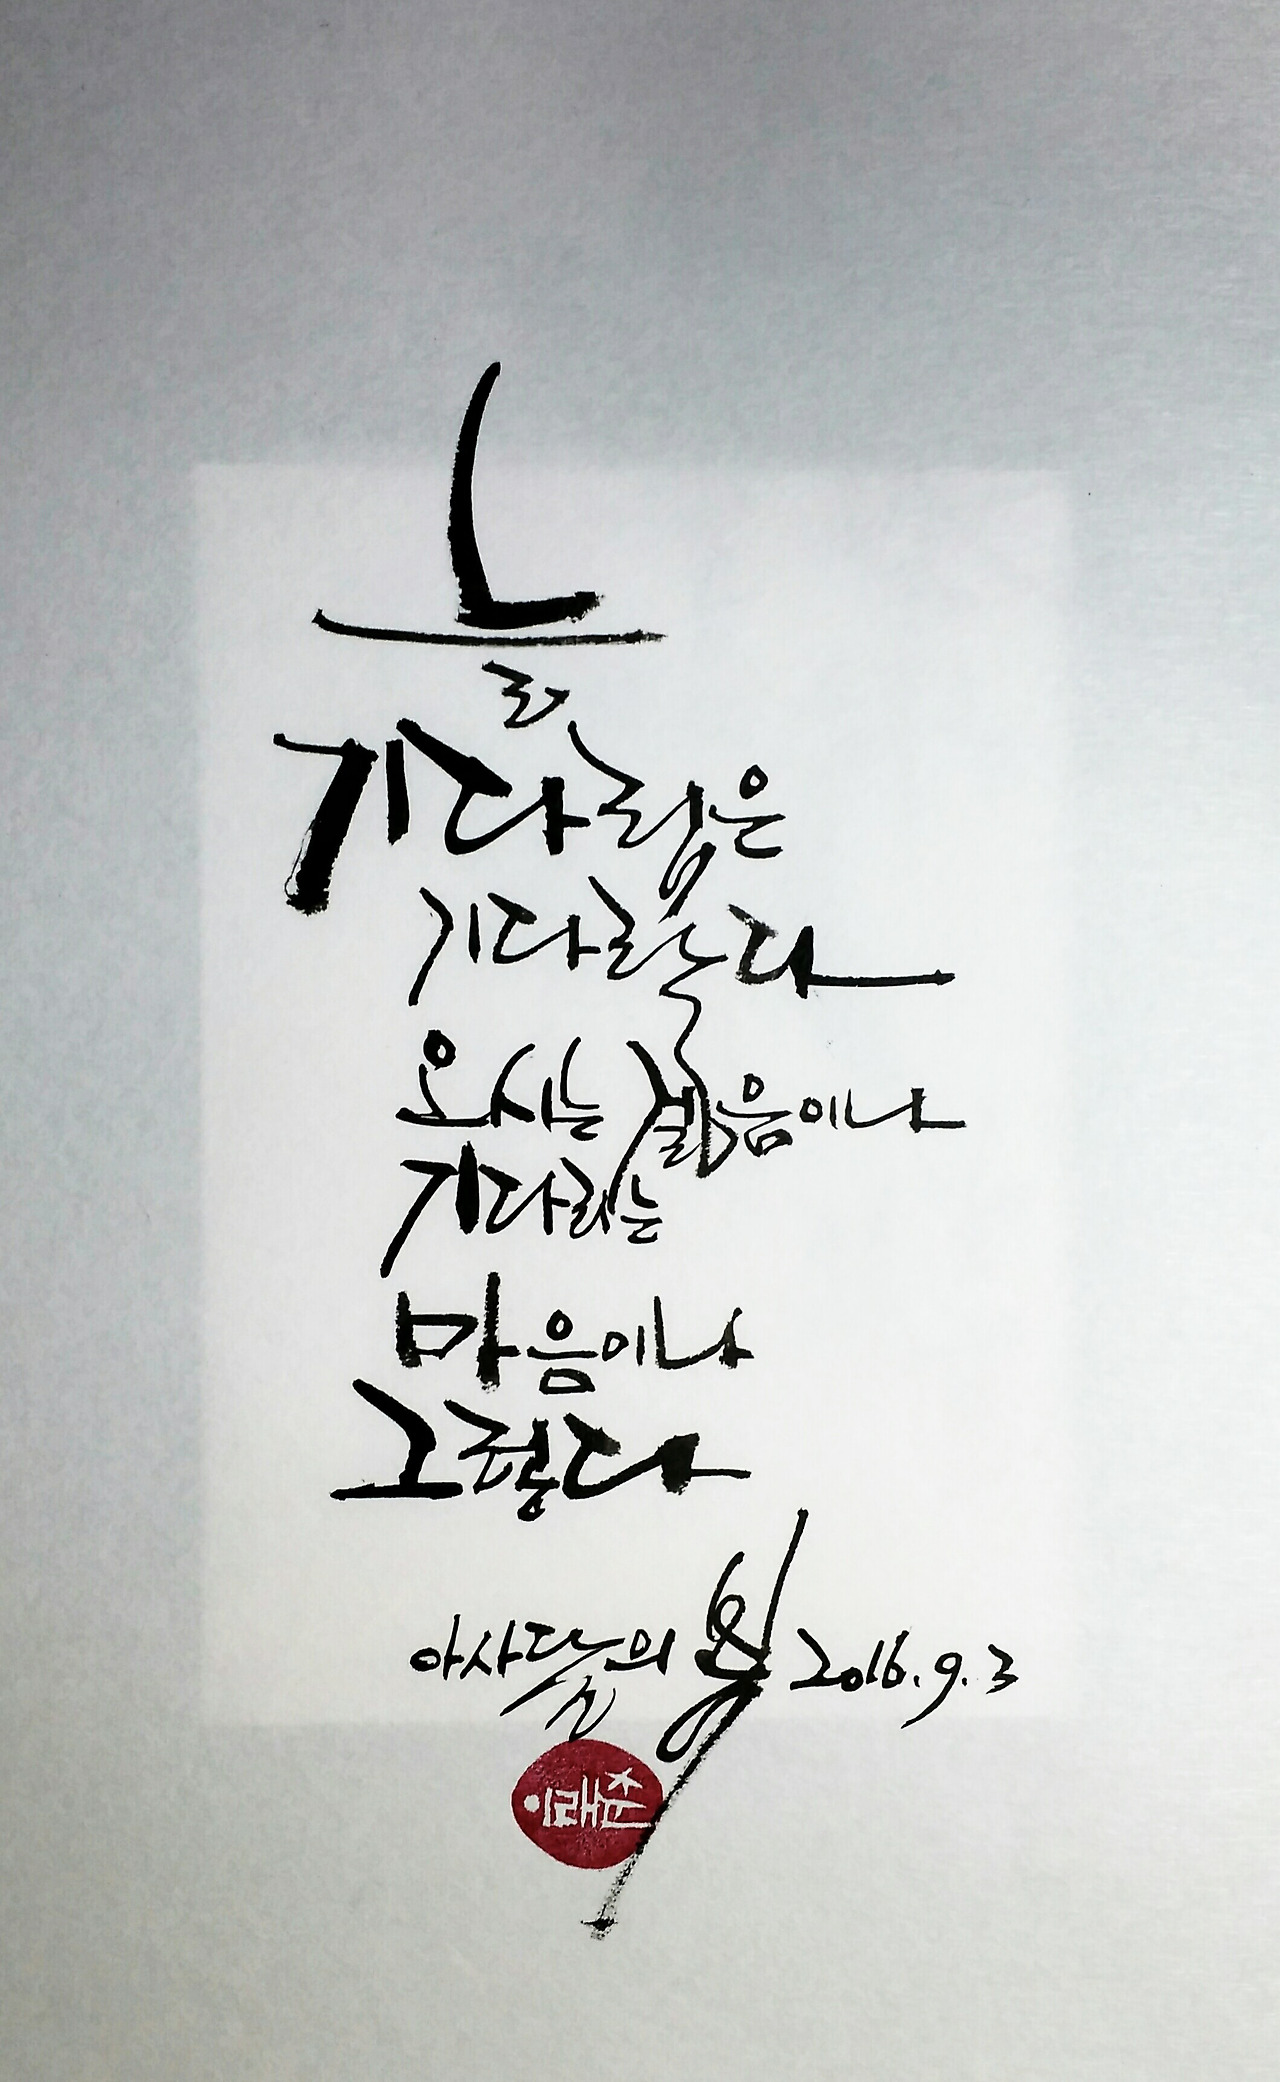 늘
기다림은
기다랗다
오시는 걸음이나
기다리는
마음이나
그렇다
아사달의 2016.9.3
이래춘